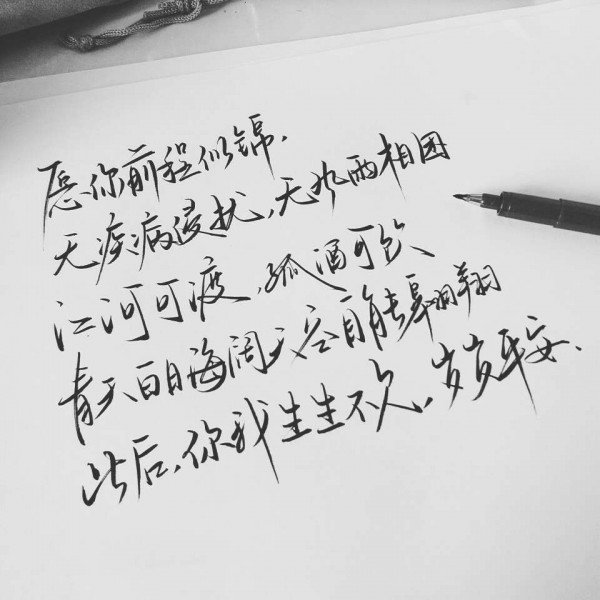 愿你前程似锦.
无疾病侵扰,无雨相困
江河可渡,孤酒可饮、
青天白日海阔天翱翔
此后,你我生生不欠,岁岁平安.